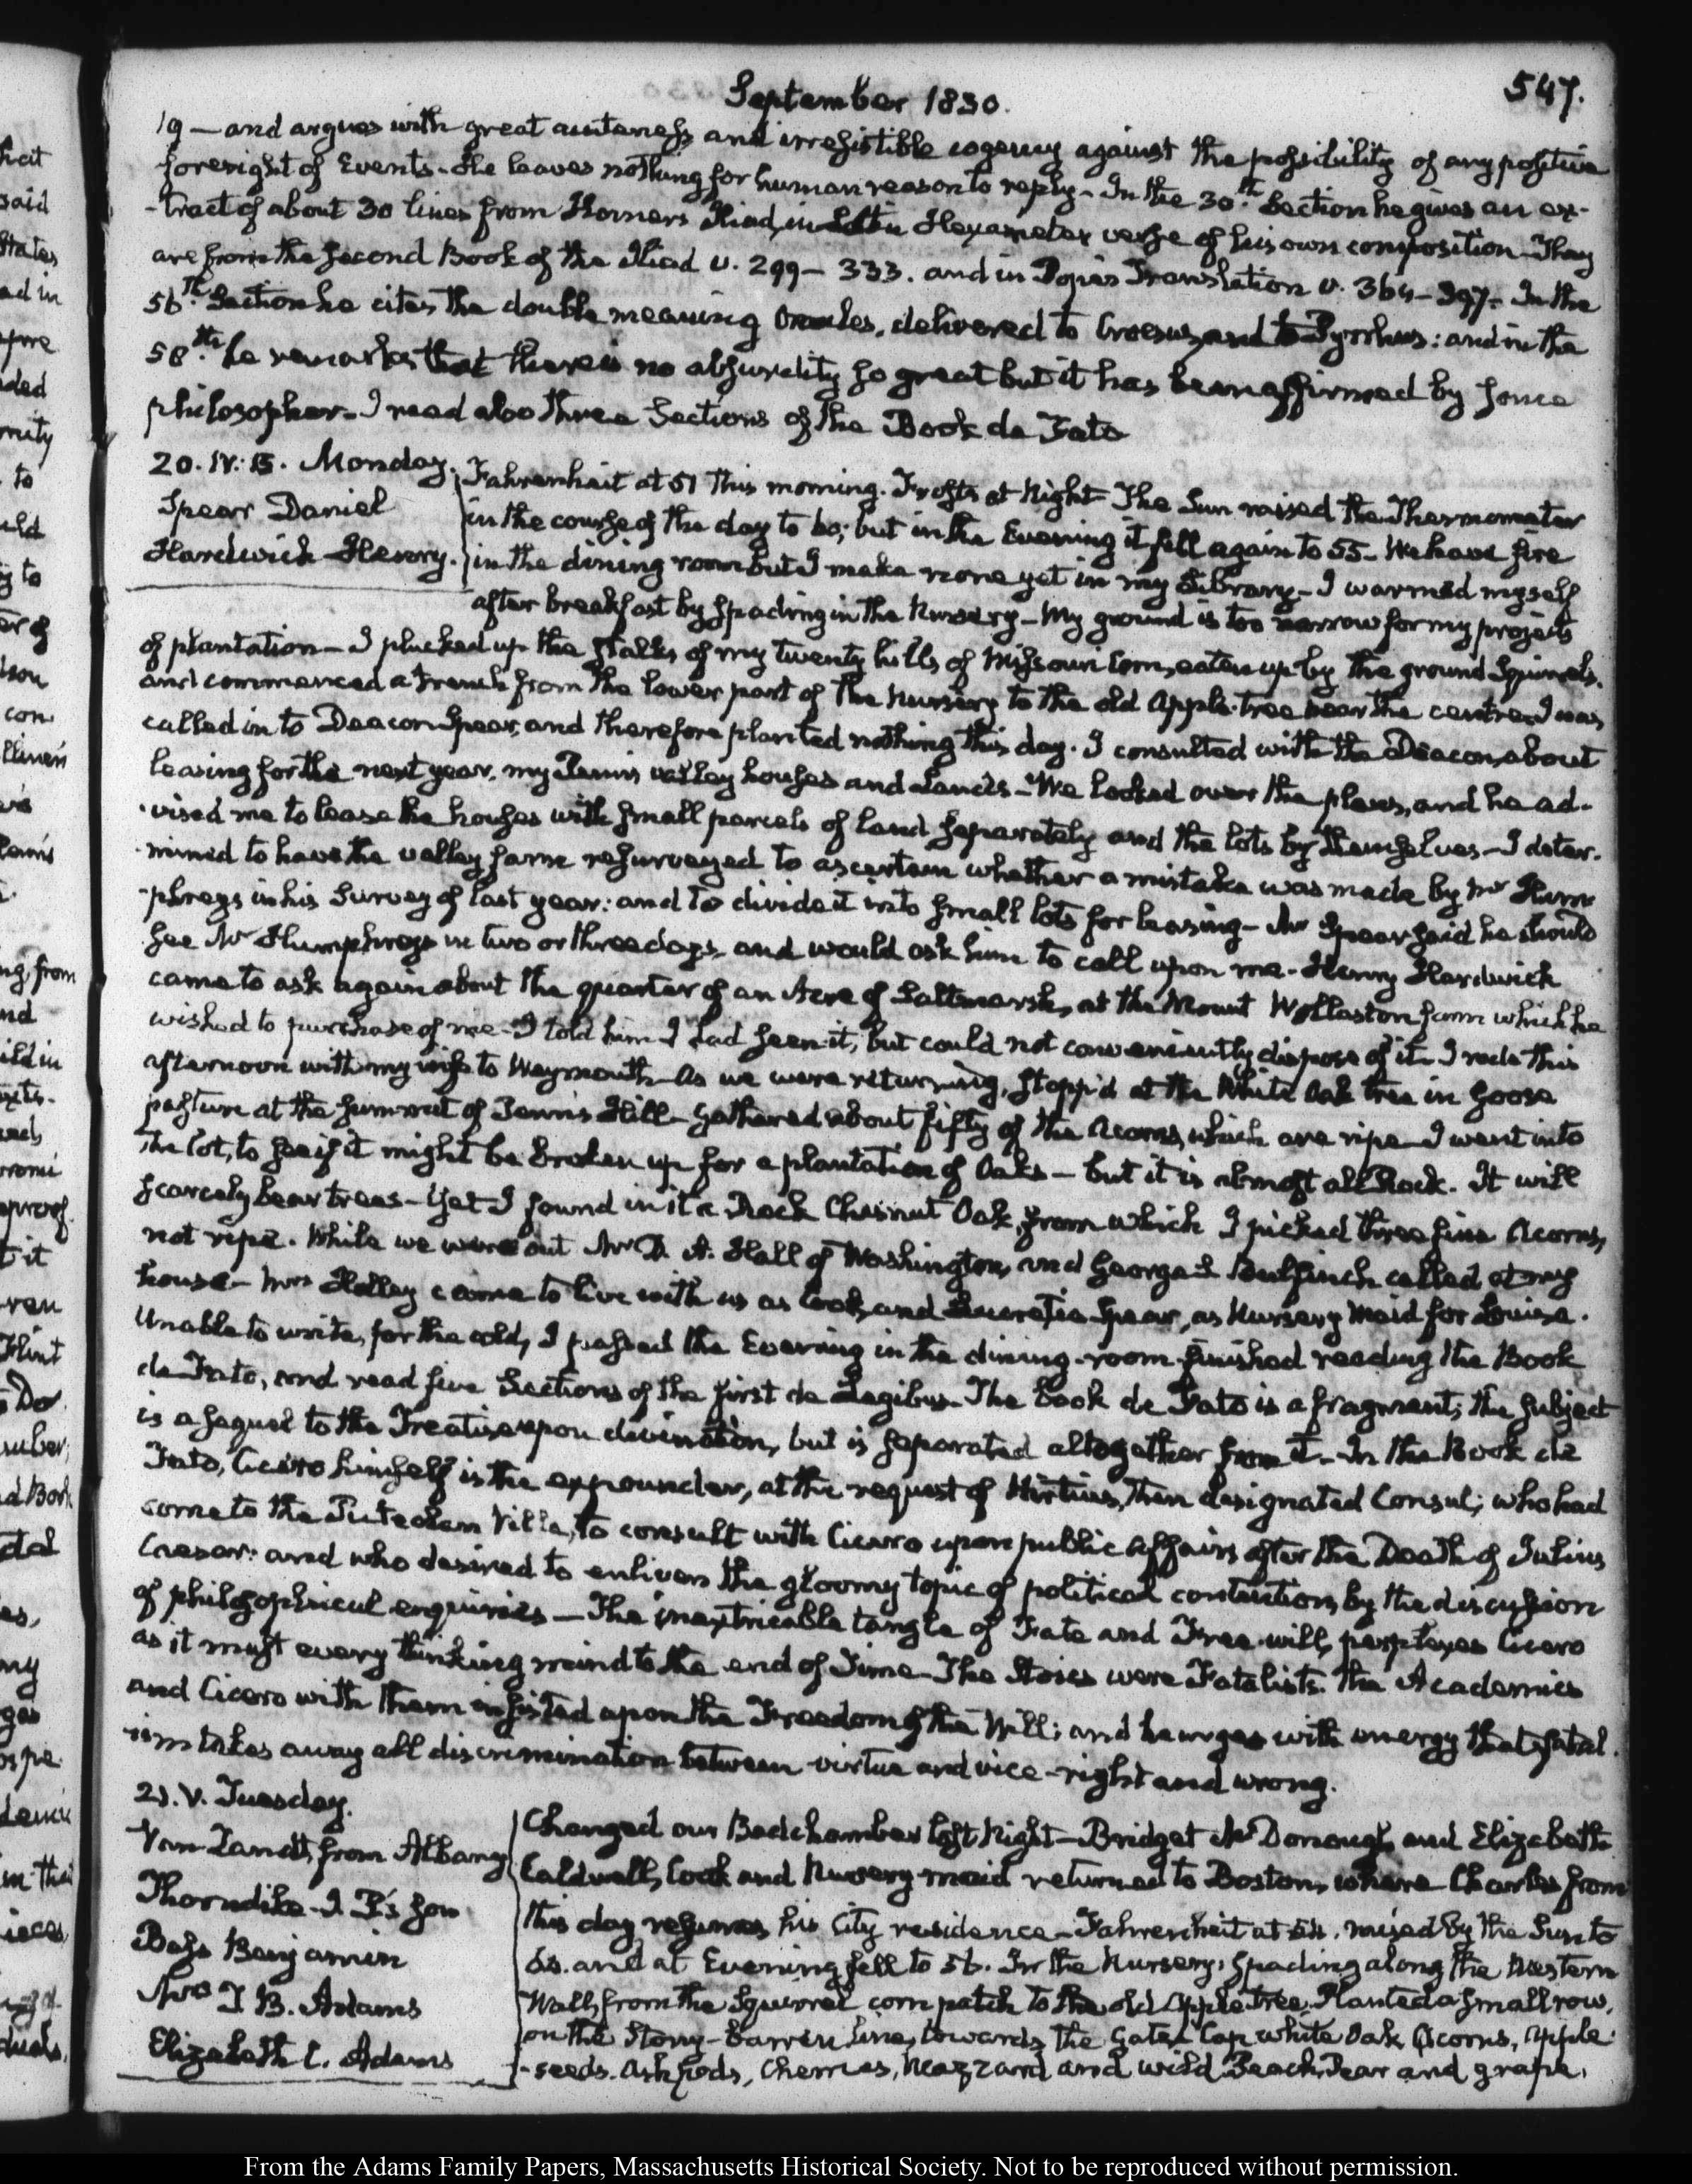 September 1830.
547.
19 — and argues with great acuteness and irresistible cogency against the possibility of any positive
foresight of Events. He leaves nothing for human reason to reply - In the 30th Section he gives an ex-
-tract of about 30 lines from Homers Iliad, in Latin Hexameter verse of his own composition - They
are from the second Book of the Iliad v. 299 - 333. and in Popes Translation v. 364 - 397 - In the
56th Section he cites the double meaning Oracles, delivered to Croesus, and to Pyrrhus: and in the
58th he remarks that there is no absurdity so great but it has been affirmed by some
philosopher - I read also three Sections of the Book de Fato
20. IV: 15. Monday.
Spear Daniel
Hardwich Henry.
Fahrenheit at 51 this morning. Frosts at Night - The Sun raised the Thermometer
in the course of the day to 60; but in the Evening it fell again to 55 - We have fire
in the dining room but I make none yet in my Library - I warmed myself
after breakfast by spading in the Nursery - My ground is too narrow for my projects
of plantation - I plucked up the stalks of my twenty hills of Missouri Corn, eaten up by the ground Squirrels.
and commenced a trench from the lower part of the Nursery to the old Apple-tree near the centre. I was
called in to Deacon Spear, and therefore planted nothing this day. I consulted with the Deacon, about
leasing for the next year, my Penn's valley houses and Lands - We looked over the plans, and he ad-
-vised me to lease the houses with small parcels of land separately and the lots by themselves - I deter-
-mined to have the valley farm resurveyed to ascertain whether a mistake was made by Mr Hum-
-phreys in his Survey of last year: and to divide it into small lots for leasing - Mr Spear said he should
see Mr Humphreys in two or three days, and would ask him to call upon me - Henry Hardwick
came to ask again about the quarter of an Acre of Saltmarsh, at the Mount Wollaston farm which he
wished to purchase of me - I told him I had seen it, but could not conveniently dispose of it. I rode this
afternoon with my wife to Weymouth - As we were returning, stopp'd at the White Oak tree in Goose
pasture at the summit of Penn's Hill - gathered about fifty of the Acorns, which are ripe - I went into
the lot, to see if it might be broken up for a plantation of Oaks - but it is almost all Rock. It will
scarcely bear trees - Yet I found in it a Rock Chesnut Oak, from which I picked three fine Acorns,
not ripe. While we were out Mr D. A. Hall of Washington, and George S Bulfinch called at my
house - Mrs Holley came to live with us as Cook, and Lucretia Spear, as Nursery Maid for Louisa.
Unable to write, for the cold, I passed the Evening in the dining-room - finished reading the Book
de Fato, and read five Sections of the first de Legibus. The book de Fato is a fragment; the subject
is a sequel to the Treatise upon divination, but is separated altogether from it - In the Book de
Fato, Cicero himself is the expounder, at the request of Hirtius, then designated Consul; who had
come to the Puteolan Villa, to consult with Cicero upon public affairs after the Death of Julius
Caesar: and who desired to enliven the gloomy topic of political contention, by the discussion
of philosophical enquiries — The inextricable tangle of Fate and Free-will, perplexes Cicero
as it must every thinking mind to the end of Time - The Stoics were Fatalists. The Academics
and Cicero with them insisted upon the Freedom of the Will; and he urges with energy that fatal-
ism takes away all discrimination between virtue and vice - right and wrong.
21. V. Tuesday.
Van Zandt, from Albany
Thorndike. I. P's son
Bass Benjamin
Mrs T B. Adams
Elizabeth C. Adams
Changed our Bedchamber last Night - Bridget McDonough and Elizabeth
Caldwell, Cook and Nursery-maid returned to Boston, where Charles from
this day resumes his City residence - Fahrenheit at 54. raised by the Sun to
and at Evening fell to 56. In the Nursery, spading along the Western
Wall, from the Squirrel corn patch to the old Apple Tree. Planted a small row,
on the Stony-barren line, towards the Gate, Cap white Oak Acorns, Apple-
-seeds. Ash pods, Cherries, Mazzard and wild Peach, Pear and grape.
From the Adams Family Papers, Massachusetts Historical Society. Not to be reproduced without permission.